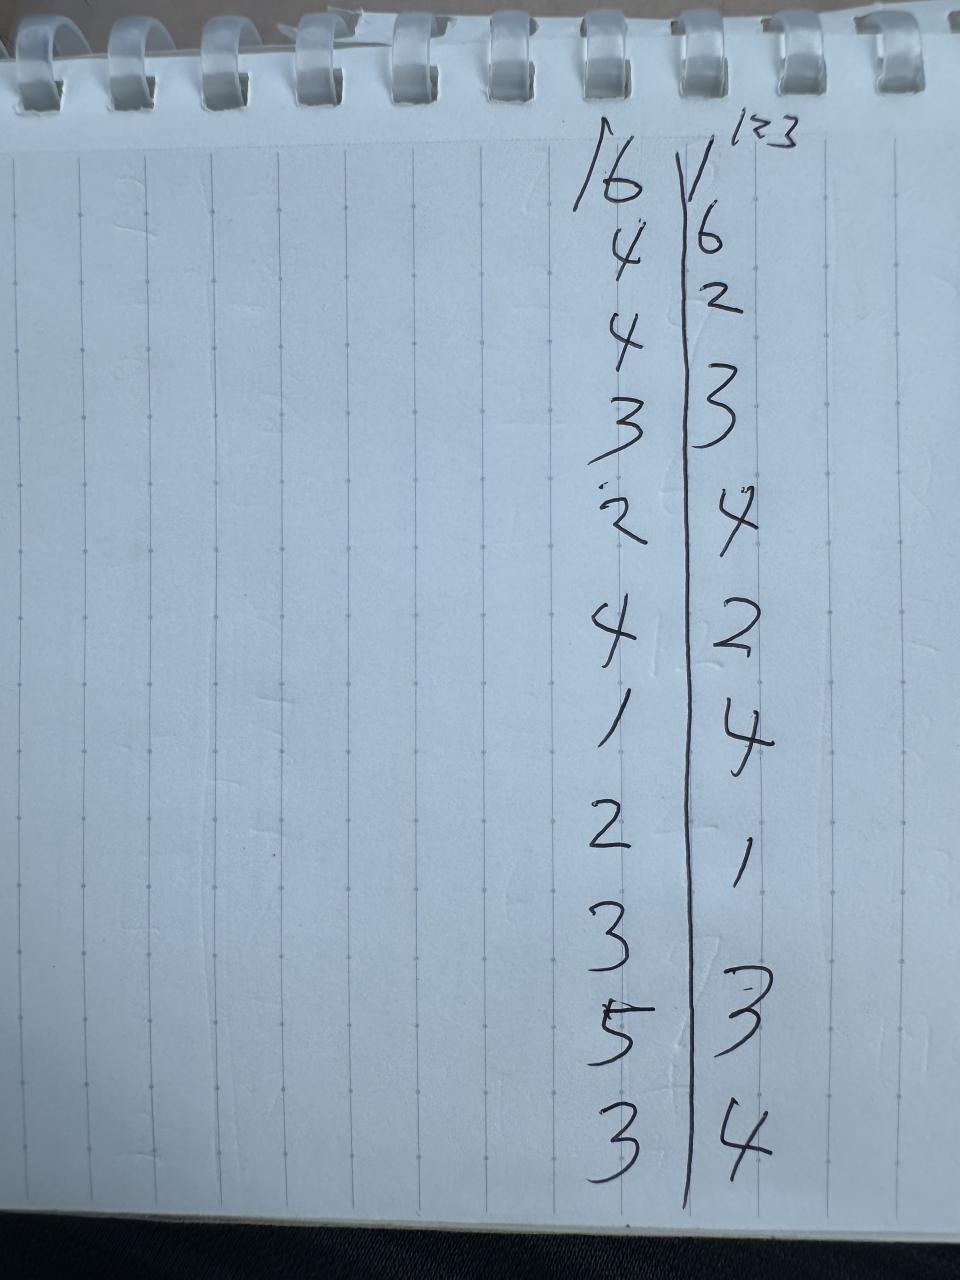 16
4
4
3
2
4
1
2
3
5
3
1 123
6
2
3
4
2
4
1
3
4